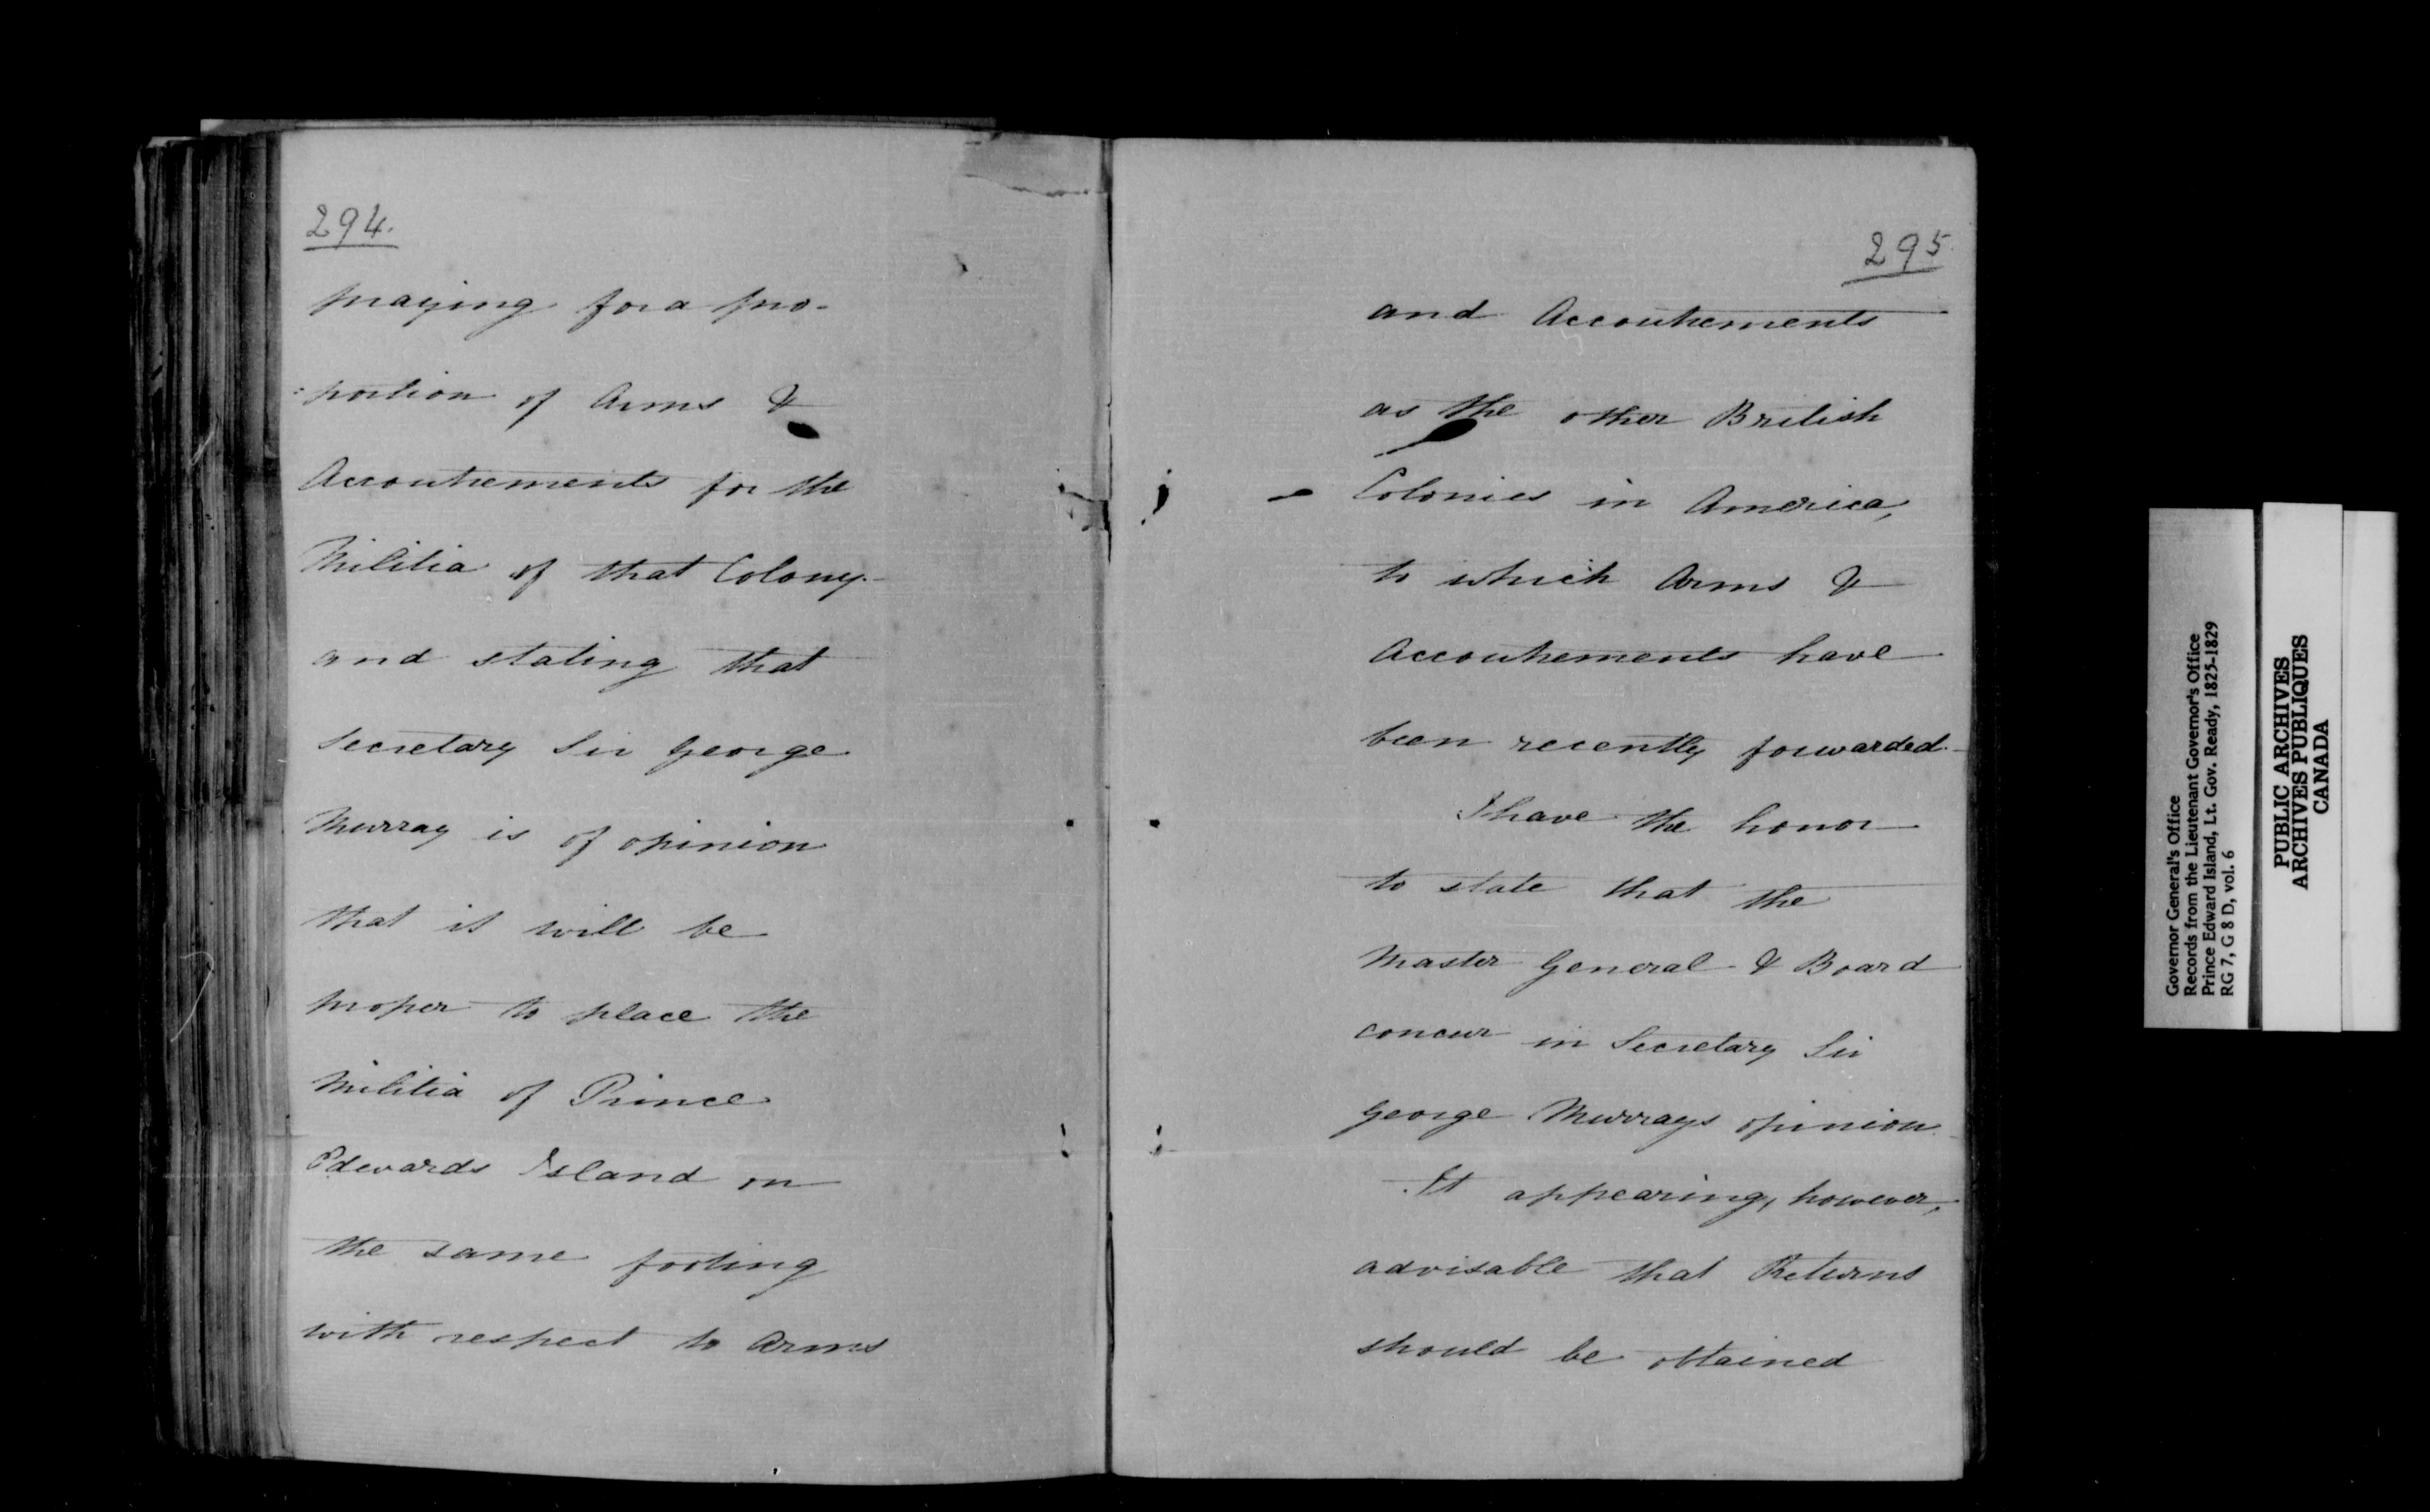 294.
praying for a pro-
:portion of Arms &
Accoutrements for the
Militia of that Colony.
and stating that
Secretary Sir George
Murray is of opinion
that it will be
proper to place the
Militia of Prince
Edwards Island on
the same footing
with respect to Arms
295
and Accoutrements
as the other British
Colonies in America,
to which Arms &
Accoutrements have
been recently forwarded.
I have the honor
to state that the
Master General & Board
concur in Secretary Sir
George Murrays opinion
It appearing, however,
advisable that Returns
should be obtained
Governor General's Office
Records from the Lieutenant Governor's Office
Prince Edward Island, Lt. Gov. Ready, 1825-1829
RG 7, G 8 D, vol. 6
PUBLIC ARCHIVES
ARCHIVES PUBLIQUES
CANADA